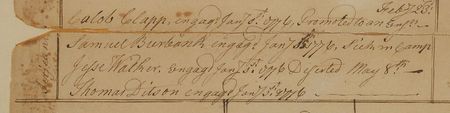 Feb.y 23.d
Calob Clapp, engag.d Jan.y 1.st 1776, Promoted to an Ens.n
Samuel Burbank engag.d Jan.y 1.st 1776, Sick in Camp
Jesse Walker. engag.d Jan.y 1.st 1776 Deserted May 8.th
Thomas Ditson engag.d Jan.y 1.st 1776